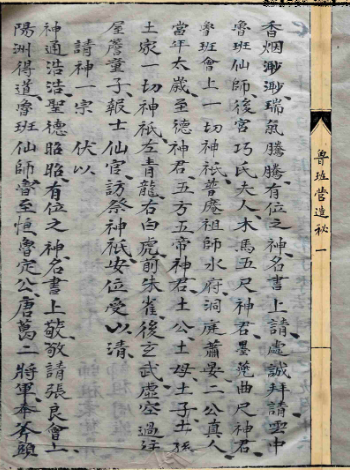 香烟渺渺瑞氣騰騰有位之神名書上請虔誠拜請空中
魯班仙師後宮巧氏夫人木馬五尺神君墨蔸曲尺神君
魯班會上一切神祇普庵祖師水府洞庭蕭晏二公真人
當年太歲至德神君五方五帝神君土公土母土子土孫
土家一切神祇左青龍右白虎前朱雀後玄武虛空過往
屋簷童子報士仙官訪祭神祇安位受以清
請神一宗 伏以
神通浩浩聖德昭昭有位之神名書上敬敬請張良會上
陽洲得道魯班仙師當至恒魯定公唐葛二將軍奉斧頭
魯班营造秘 一